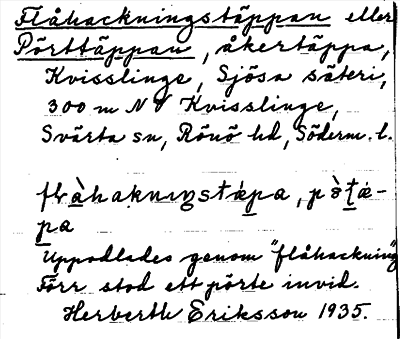 Flåhackningstäppan eller
Pörttäppan, åkertäppa,
Kvisslinge, Sjösa säteri,
300 m NV Kvisslinge,
Svärta sn, Rönö hd, Söderm. l.
flàhaknıŋstǽpa, pòtǽ-
pa
Uppodlades genom "flåhackning"
Förr stod ett pörte invid.
Herberth Eriksson 1935.